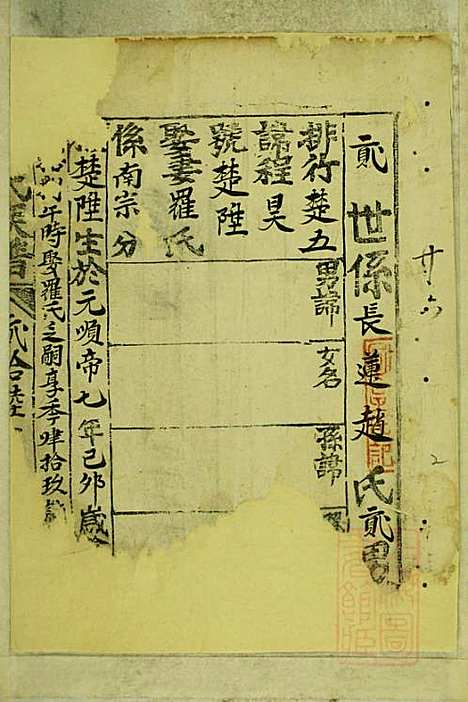 廿六
貳世係長蓮趙氏貳男
排行楚五
諱程昊
號楚陞
娶妻羅氏
係南宗分
男諱
女名
孫諱
楚陞生於元順帝七年己夘歲
年時娶羅氏之嗣享年肆拾玖歲